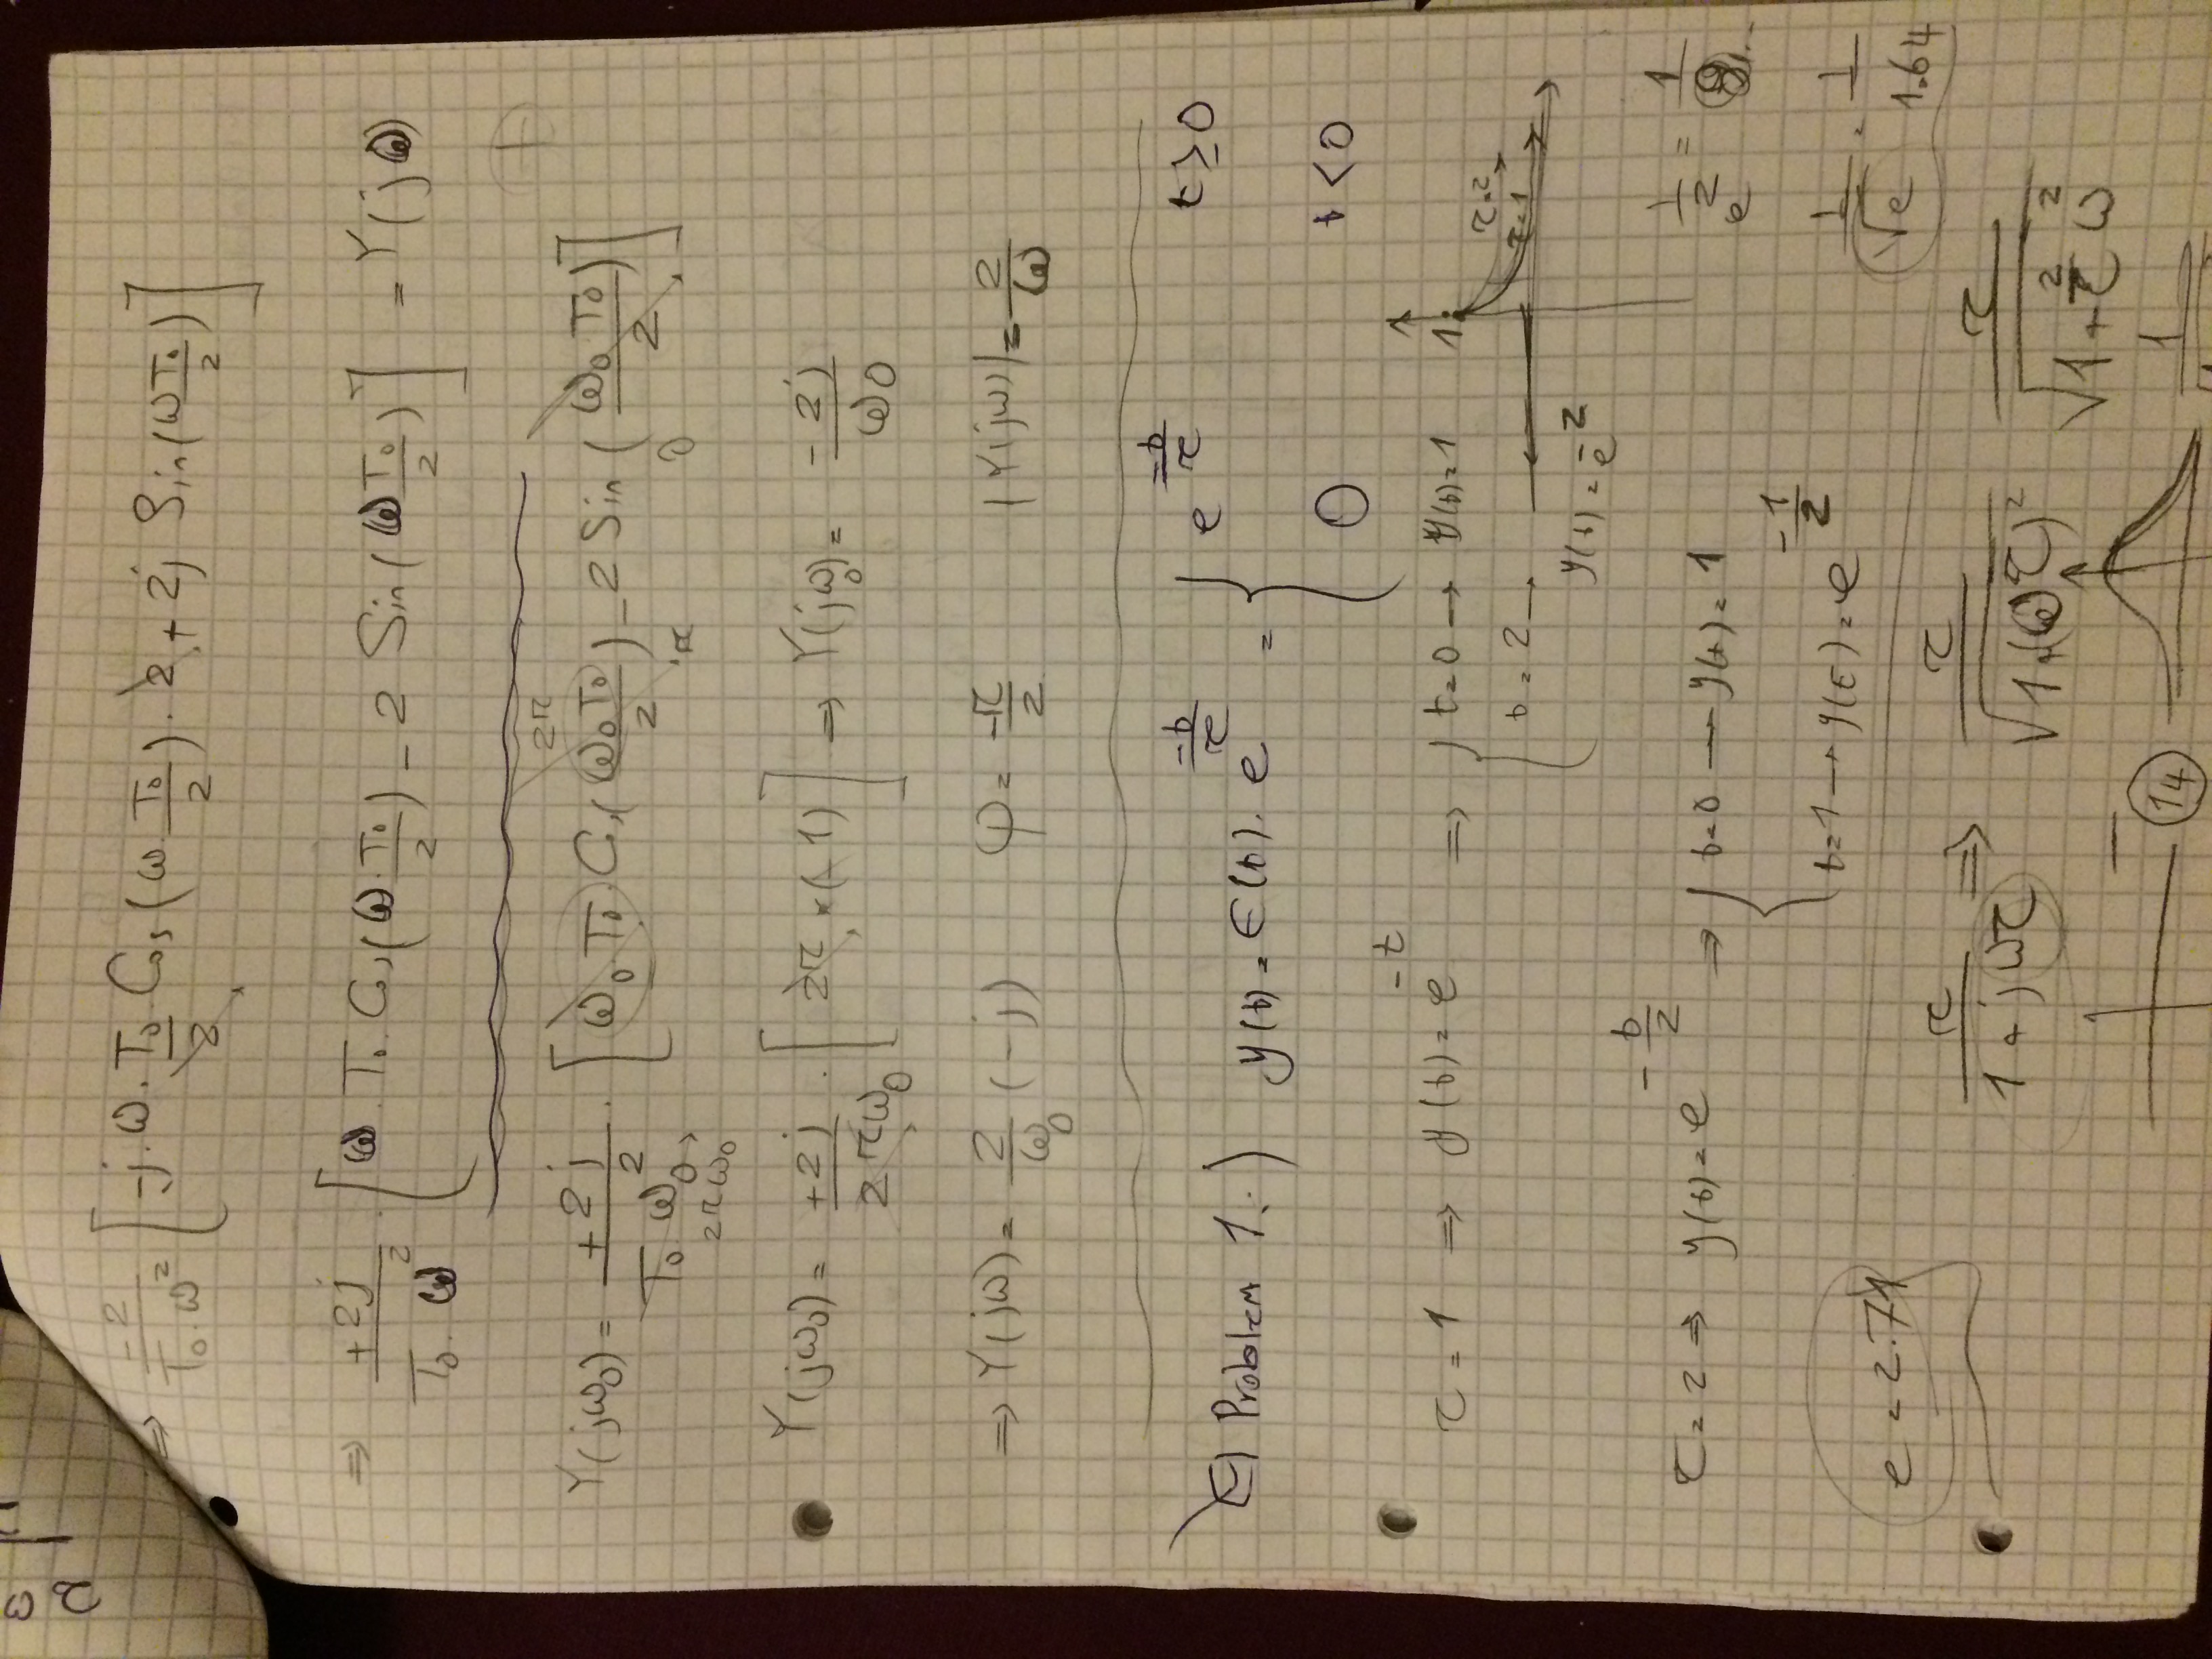 ⇒ -2/(T₀·ω²) [-j·ω·T₀/2·Cos(ω·T₀/2)·2 + 2j Sin(ωT₀/2)]
⇒ +2j/(T₀·ω²) · [ω·T₀·Cos(ω·T₀/2) - 2 Sin(ωT₀/2)] = Y(jω)
+
2π
Y(jω₀) = +2j/(T₀ω₀²) · [ω₀·T₀·Cos(ω₀T₀/2) - 2 Sin(ω₀T₀/2)]
2πω₀ π 0
Y(jω₀) = +2j/(2πω₀) · [2π × (-1)] ⇒ Y(jω₀) = -2j/ω₀
⇒ Y(jω) = 2/ω₀ (-j) φ = -π/2 |Y(jω)| = 2/ω
Problem 1.) y(t) = ε(t)·e^(-t/τ) = { e^(-t/τ) t ≥ 0
0 t < 0
τ = 1 ⇒ y(t) = e^(-t) ⇒ { t=0 → y(t)=1
1
τ=2
τ=1
t = 2 →
y(t) = e^-2
τ = 2 ⇒ y(t) = e^(-t/2) ⇒ { t=0 → y(t) = 1
t=1 → y(t) = e^(-1/2)
1/√e = 1/1.64
e = 2.71
τ/(1+jωτ) ⇒ τ/√(1+(ωτ)²) τ/√(1+τ²ω²)
14